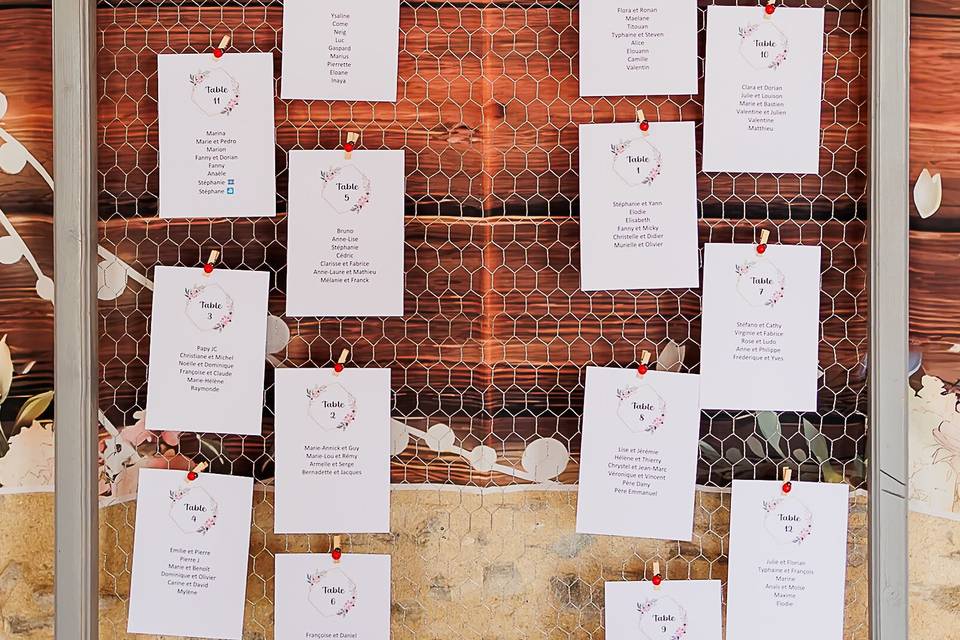 Ysaline
Come
Neig
Luc
Gaspard
Marius
Pierrette
Eloane
Inaya
Flora et Ronan
Maelane
Titouan
Typhaine et Steven
Alice
Elouann
Camille
Valentin
Table
10
Clara et Dorian
Julie et Louison
Marie et Bastien
Valentine et Julien
Valentine
Matthieu
Table
11
Marina
Marie et Pedro
Marion
Fanny et Dorian
Fanny
Anaële
Stéphanie
Stéphane
Table
5
Bruno
Anne-Lise
Stéphanie
Cédric
Clarisse et Fabrice
Anne-Laure et Mathieu
Mélanie et Franck
Table
1
Stéphanie et Yann
Elodie
Elisabeth
Fanny et Micky
Christelle et Didier
Murielle et Olivier
Table
7
Stéfano et Cathy
Virginie et Fabrice
Rose et Ludo
Anne et Philippe
Fréderique et Yves
Table
3
Papy JC
Christiane et Michel
Noëlle et Daniel
Françoise et Claude
Marie-Hélène
Raymonde
Table
2
Marie-Annick et Guy
Marie-Lou et Rémy
Armelle et Serge
Bernadette et Jacques
Table
8
Lise et Jérémie
Hélène et Thierry
Chrystel et Jean-Marc
Véronique et Vincent
Père Dany
Père Emmanuel
Table
4
Emilie et Pierre
Pierre J
Marie et Benoît
Dominique et Olivier
Carine et David
Mylène
Table
12
Julie et Florian
Typhaine et François
Marine
Anaïs et Moïse
Maxime
Elodie
Table
6
Françoise et Daniel
Table
9